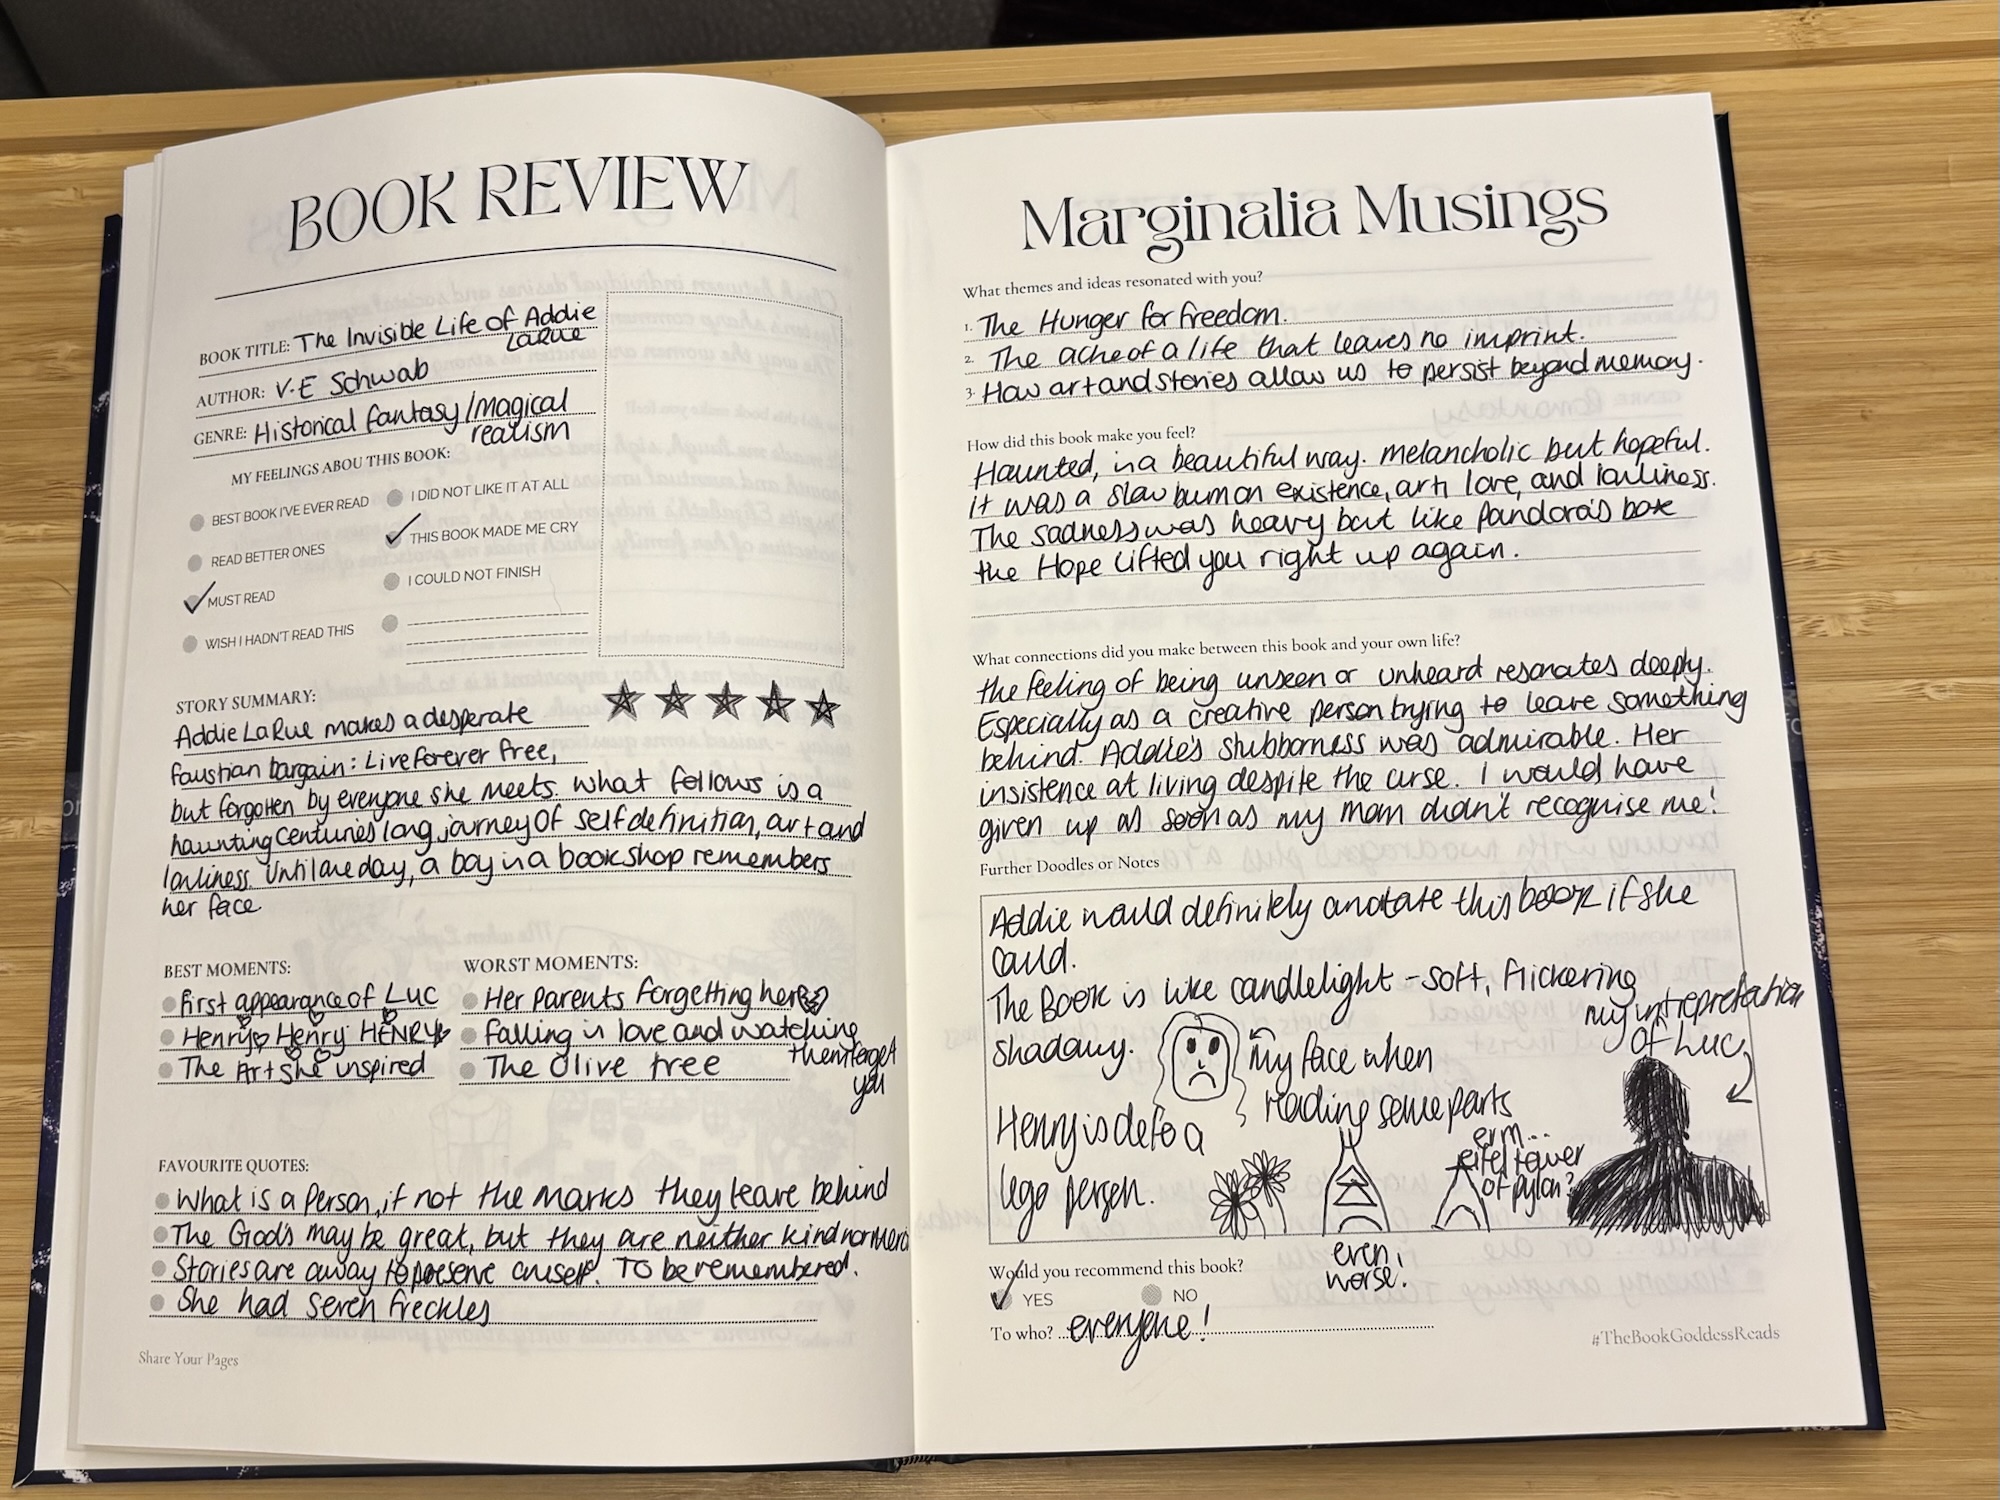 BOOK REVIEW
BOOK TITLE: The Invisible Life of Addie
LaRue
AUTHOR: V.E Schwab
GENRE: Historical fantasy/magical
realism
MY FEELINGS ABOU THIS BOOK:
BEST BOOK I'VE EVER READ
READ BETTER ONES
MUST READ
WISH I HADN'T READ THIS
I DID NOT LIKE IT AT ALL
THIS BOOK MADE ME CRY
I COULD NOT FINISH
STORY SUMMARY:
Addie LaRue makes a desperate
faustian bargain: Live forever free,
but forgotten by everyone she meets. What follows is a
haunting centuries long journey of self definition, art and
lonliness. Until one day, a boy in a bookshop remembers
her face
BEST MOMENTS:
First appearance of Luc
Henry Henry HENRY
The Art she inspired
WORST MOMENTS:
Her parents forgetting her
falling in love and watching
them forget
you
The Olive tree
FAVOURITE QUOTES:
What is a Person, if not the marks they leave behind
The God's may be great, but they are neither kind nor
Stories are a way to preserve oneself. To be remembered.
She had seven freckles
Share Your Pages
Marginalia Musings
What themes and ideas resonated with you?
1. The Hunger for freedom.
2. The ache of a life that leaves no imprint.
3. How art and stories allow us to persist beyond memory.
How did this book make you feel?
Haunted, in a beautiful way. Melancholic but hopeful.
it was a slow burn on existence, art, love, and lonliness.
The sadness was heavy but like Pandora's box
the Hope lifted you right up again.
What connections did you make between this book and your own life?
the feeling of being unseen or unheard resonates deeply.
Especially as a creative person trying to leave something
behind. Addie's stubborness was admirable. Her
insistence at living despite the curse. I would have
given up as soon as my mom didn't recognise me!
Further Doodles or Notes
Addie would definitely anotate this book if she
could.
The Book is like candlelight - soft, flickering
shadowy.
my face when
reading some parts
my intrepretation
of Luc
Henry is defo a
lego person.
erm...
eifel tower
of pylon?
even
worse.
Would you recommend this book?
YES
NO
To who? everyone!
#TheBookGoddessReads